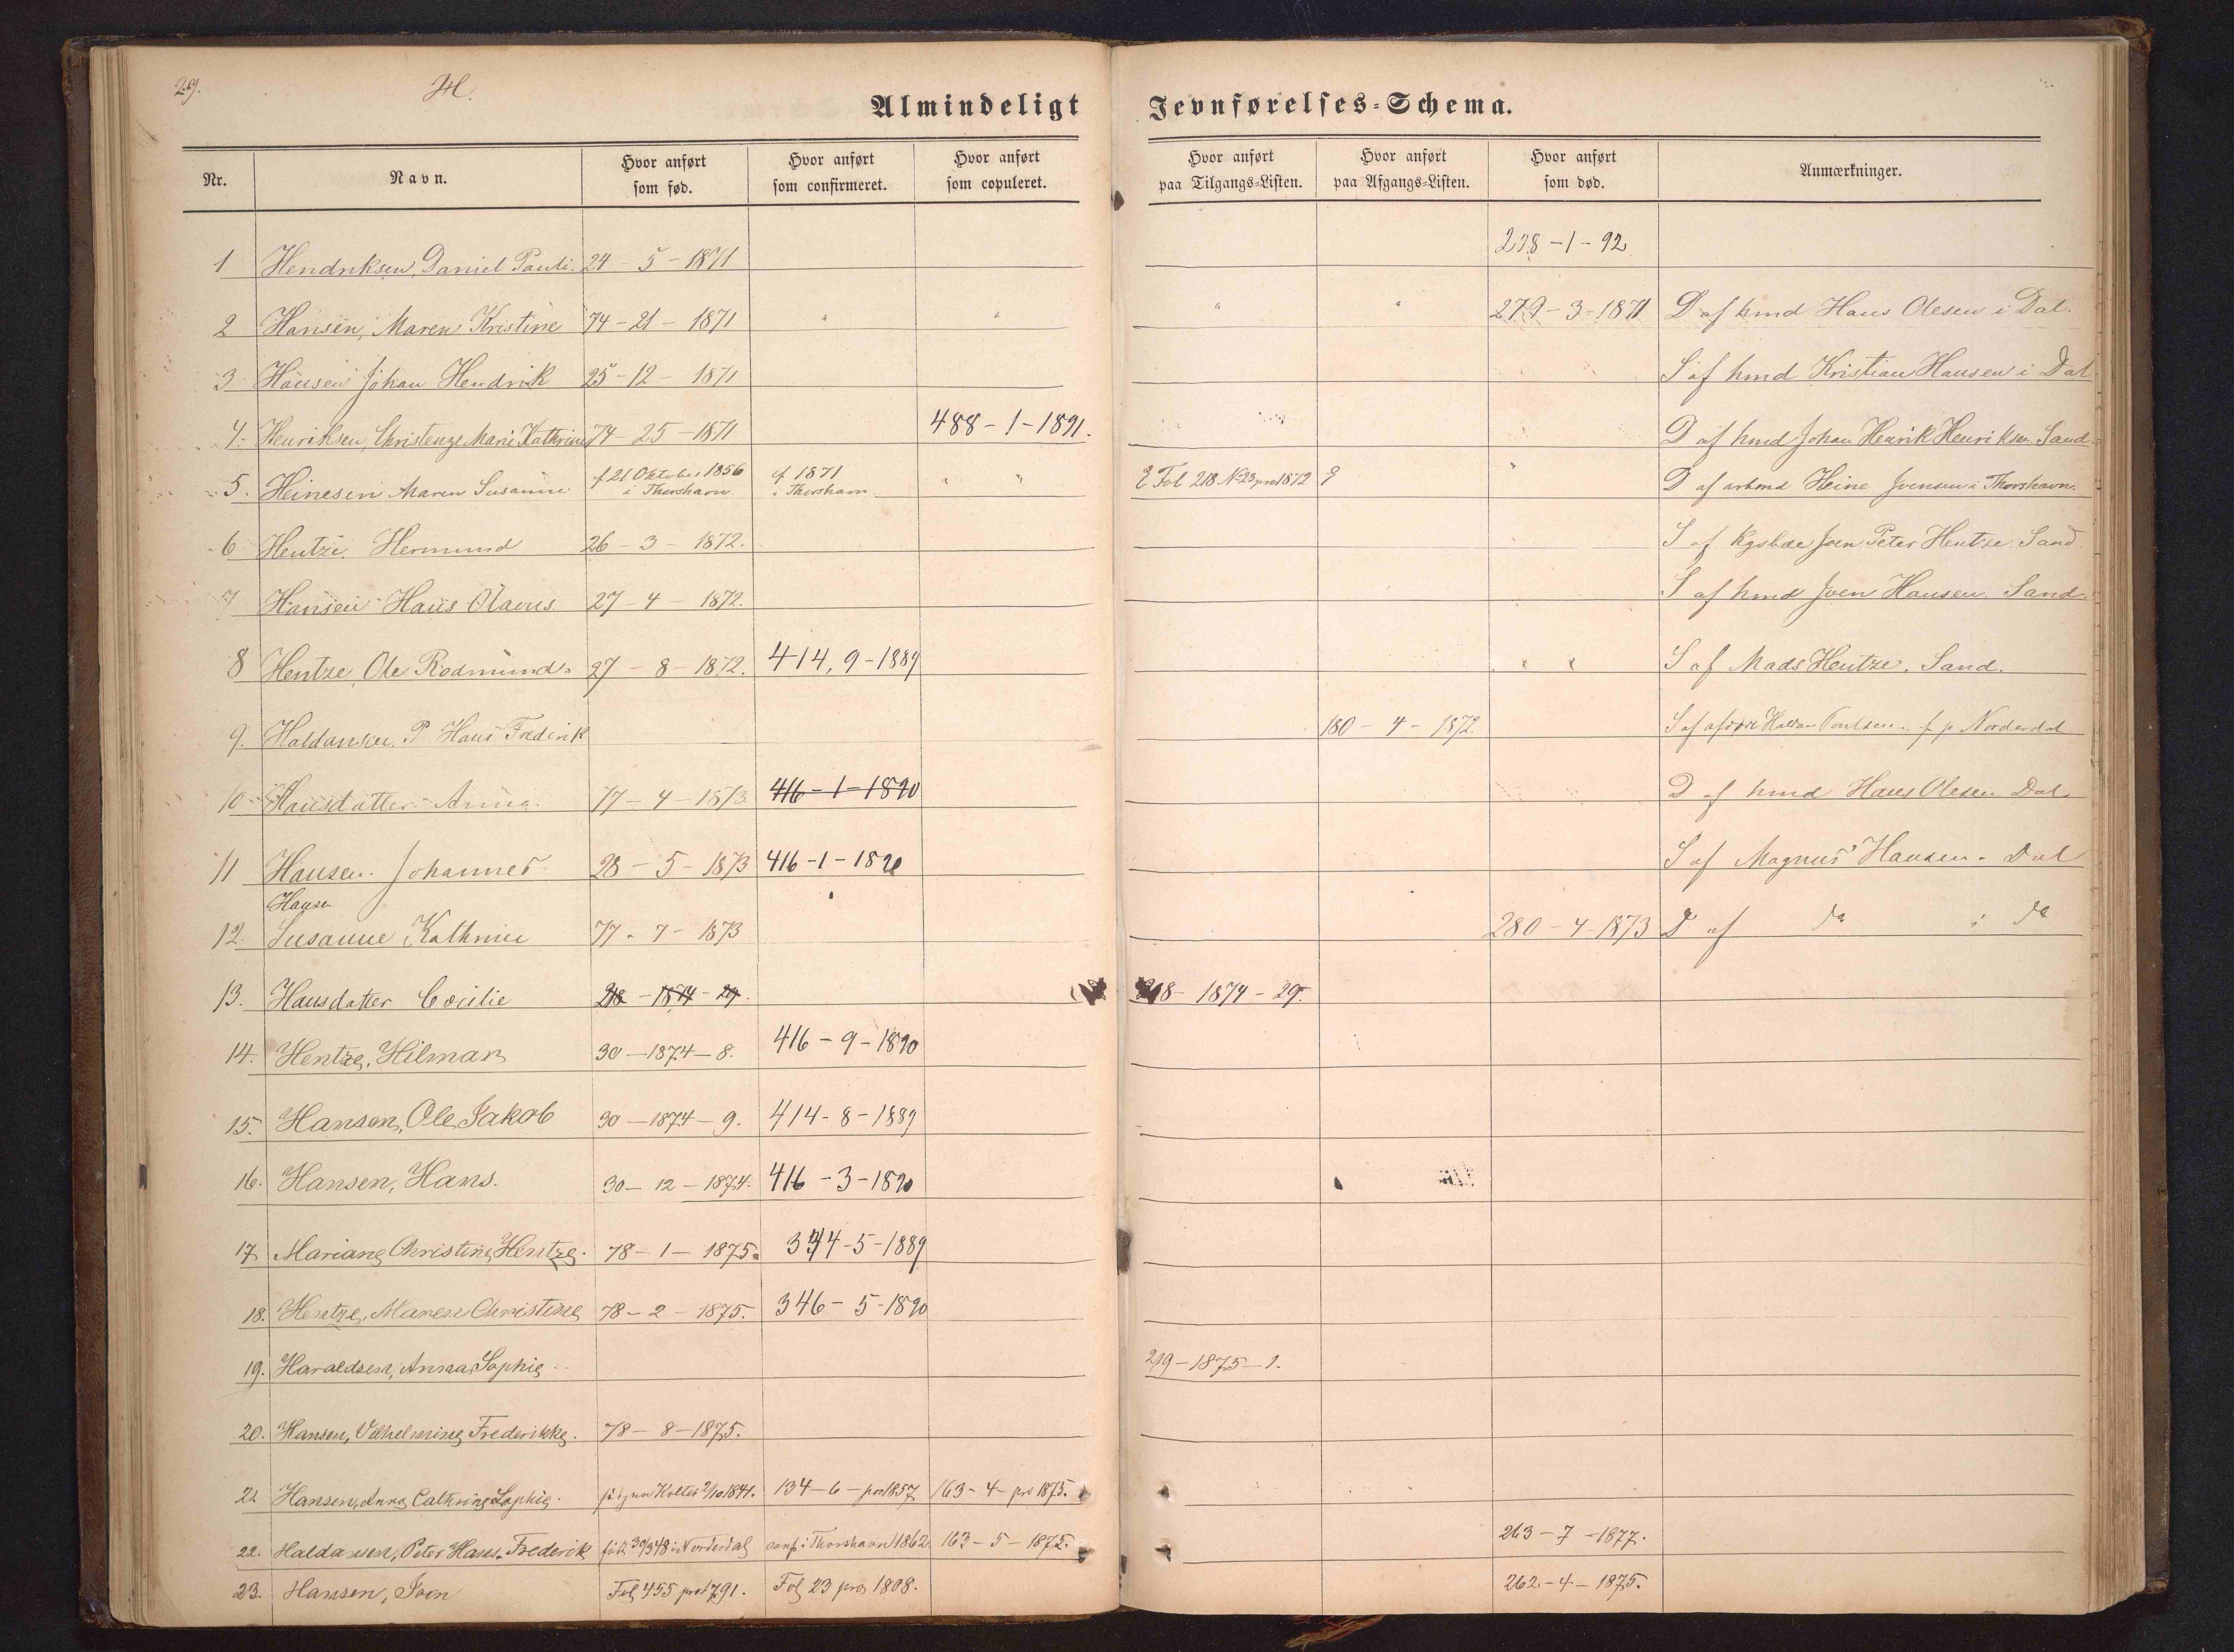 29.
H.
Almindeligt Jevnførelses-Schema.
Nr. Navn. Hvor anført som fød. Hvor anført som confirmeret. Hvor anført som copuleret. Hvor anført paa Tilgangs-Listen. Hvor anført paa Afgangs-Listen. Hvor anført som død. Anmærkninger.
1 Hendriksen, Daniel Pauli. 24 - 5 - 1871 298 - 1 - 92
2 Hansen, Maren Kristine 74 - 21 - 1871 " " " " 279 - 3 - 1871 D af hmd Hans Olesen i Dal.
3 Hansen Johan Hendrik 25 - 12 - 1871 S af hmd Kristian Hansen i Dal
4. Henriksen, Christenze Marie Kathrine 74 - 25 - 1871 488 - 1 - 1891. D af hmd Johan Henrik Henriksen Sand
5. Heinesen Maren Susanne f 21 Oktober 1856 i Thorshavn cf 1871 i Thorshavn " " Fol 218 No 23 pro 1872 " D af arbmd Heine Joensen i Thorshavn.
6 Hentze. Hermund 26 - 3 - 1872. S af Kgsbde Joen Peter Hentze. Sand
7 Hansen Hans Olavus 27 - 4 - 1872. S af hmd Joen Hansen. Sand.
8 Hentze, Ole Rodmund. 27 - 8 - 1872. 414, 9 - 1889 " " S af Mads Hentze. Sand.
9. Haldansen. P Hans Frederik 180 - 4 - 1872. S af Haldan Poulsen. f p Norderdal
10 Hansdatter Anna. 77 - 4 - 1873 416 - 1 - 1890 D af hmd Hans Olesen Dal.
11 Hansen. Johannes 28 - 5 - 1873 416 - 1 - 1890 S af Magnus Hansen. Dal
Hansen
12. Susanne Kathrine 77 - 7 - 1873 280 - 4 - 1873 D af do i do
13. Hansdatter Cecilie 218 - 1874 - 29. 218 - 1874 - 29.
14. Hentze, Hilmar 30 - 1874 - 8. 416 - 9 - 1890
15. Hansen, Ole Jakob 30 - 1874 - 9. 414 - 8 - 1889
16. Hansen, Hans. 30 - 12 - 1874. 416 - 3 - 1890
17. Mariane Christine Hentze. 78 - 1 - 1875. 344 - 5 - 1889
18. Hentze, Maren Christine 78 - 2 - 1875. 346 - 5 - 1890
19. Haraldsen, Anna Sophie 219 - 1875 - 1.
20. Hansen, Vilhelmine Frederikke. 78 - 8 - 1875.
21. Hansen, Anna Cathrine Sophie. Kolter 2/10 1841. 134 - 6 - pro 1857 163 - 4 - pro 1875.
22. Haldansen, Peter Hans Frederik født 30/3 48 i Norderdal conf. i Thorshavn 1862. 163 - 5 - 1875. 263 - 7 - 1877.
23. Hansen, Joen Fol 455 pro 1791. Fol 23 pro 1808. 262 - 4 - 1875.